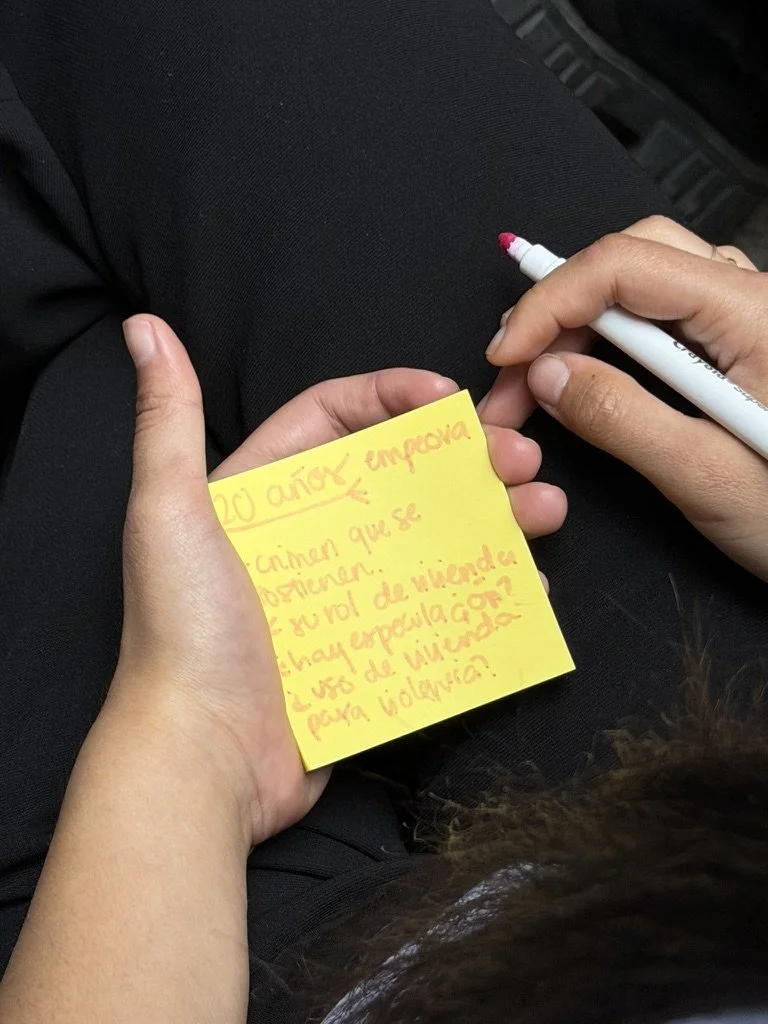 20 años empeora
crimen que se
ostienen.
su rol de vivienda
¿hay especulación?
¿uso de vivienda
para violencia?
Crayola Supe